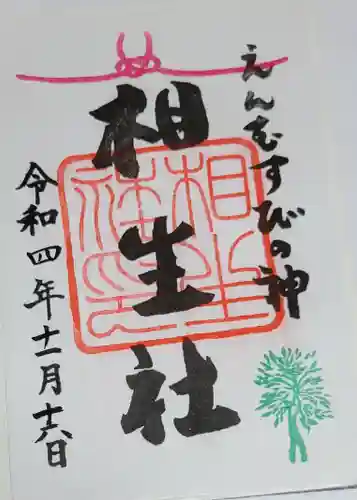 えんむすびの神
相生社
相生社印
令和四年十一月十六日